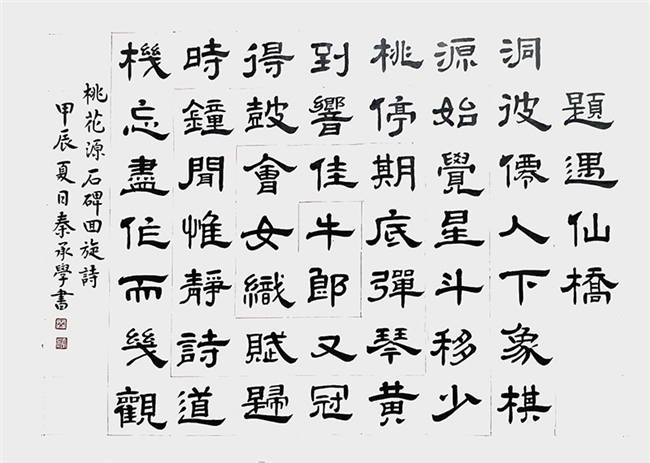 題遇仙橋
洞彼僊人下象棋
源始覺星斗移少
桃停期底彈琴黄
到響佳牛郎又冠
得皷會女織賦歸
時鐘聞惟靜詩道
機忘盡作而幾觀
桃花源石碑回旋詩
甲辰夏日秦承學書